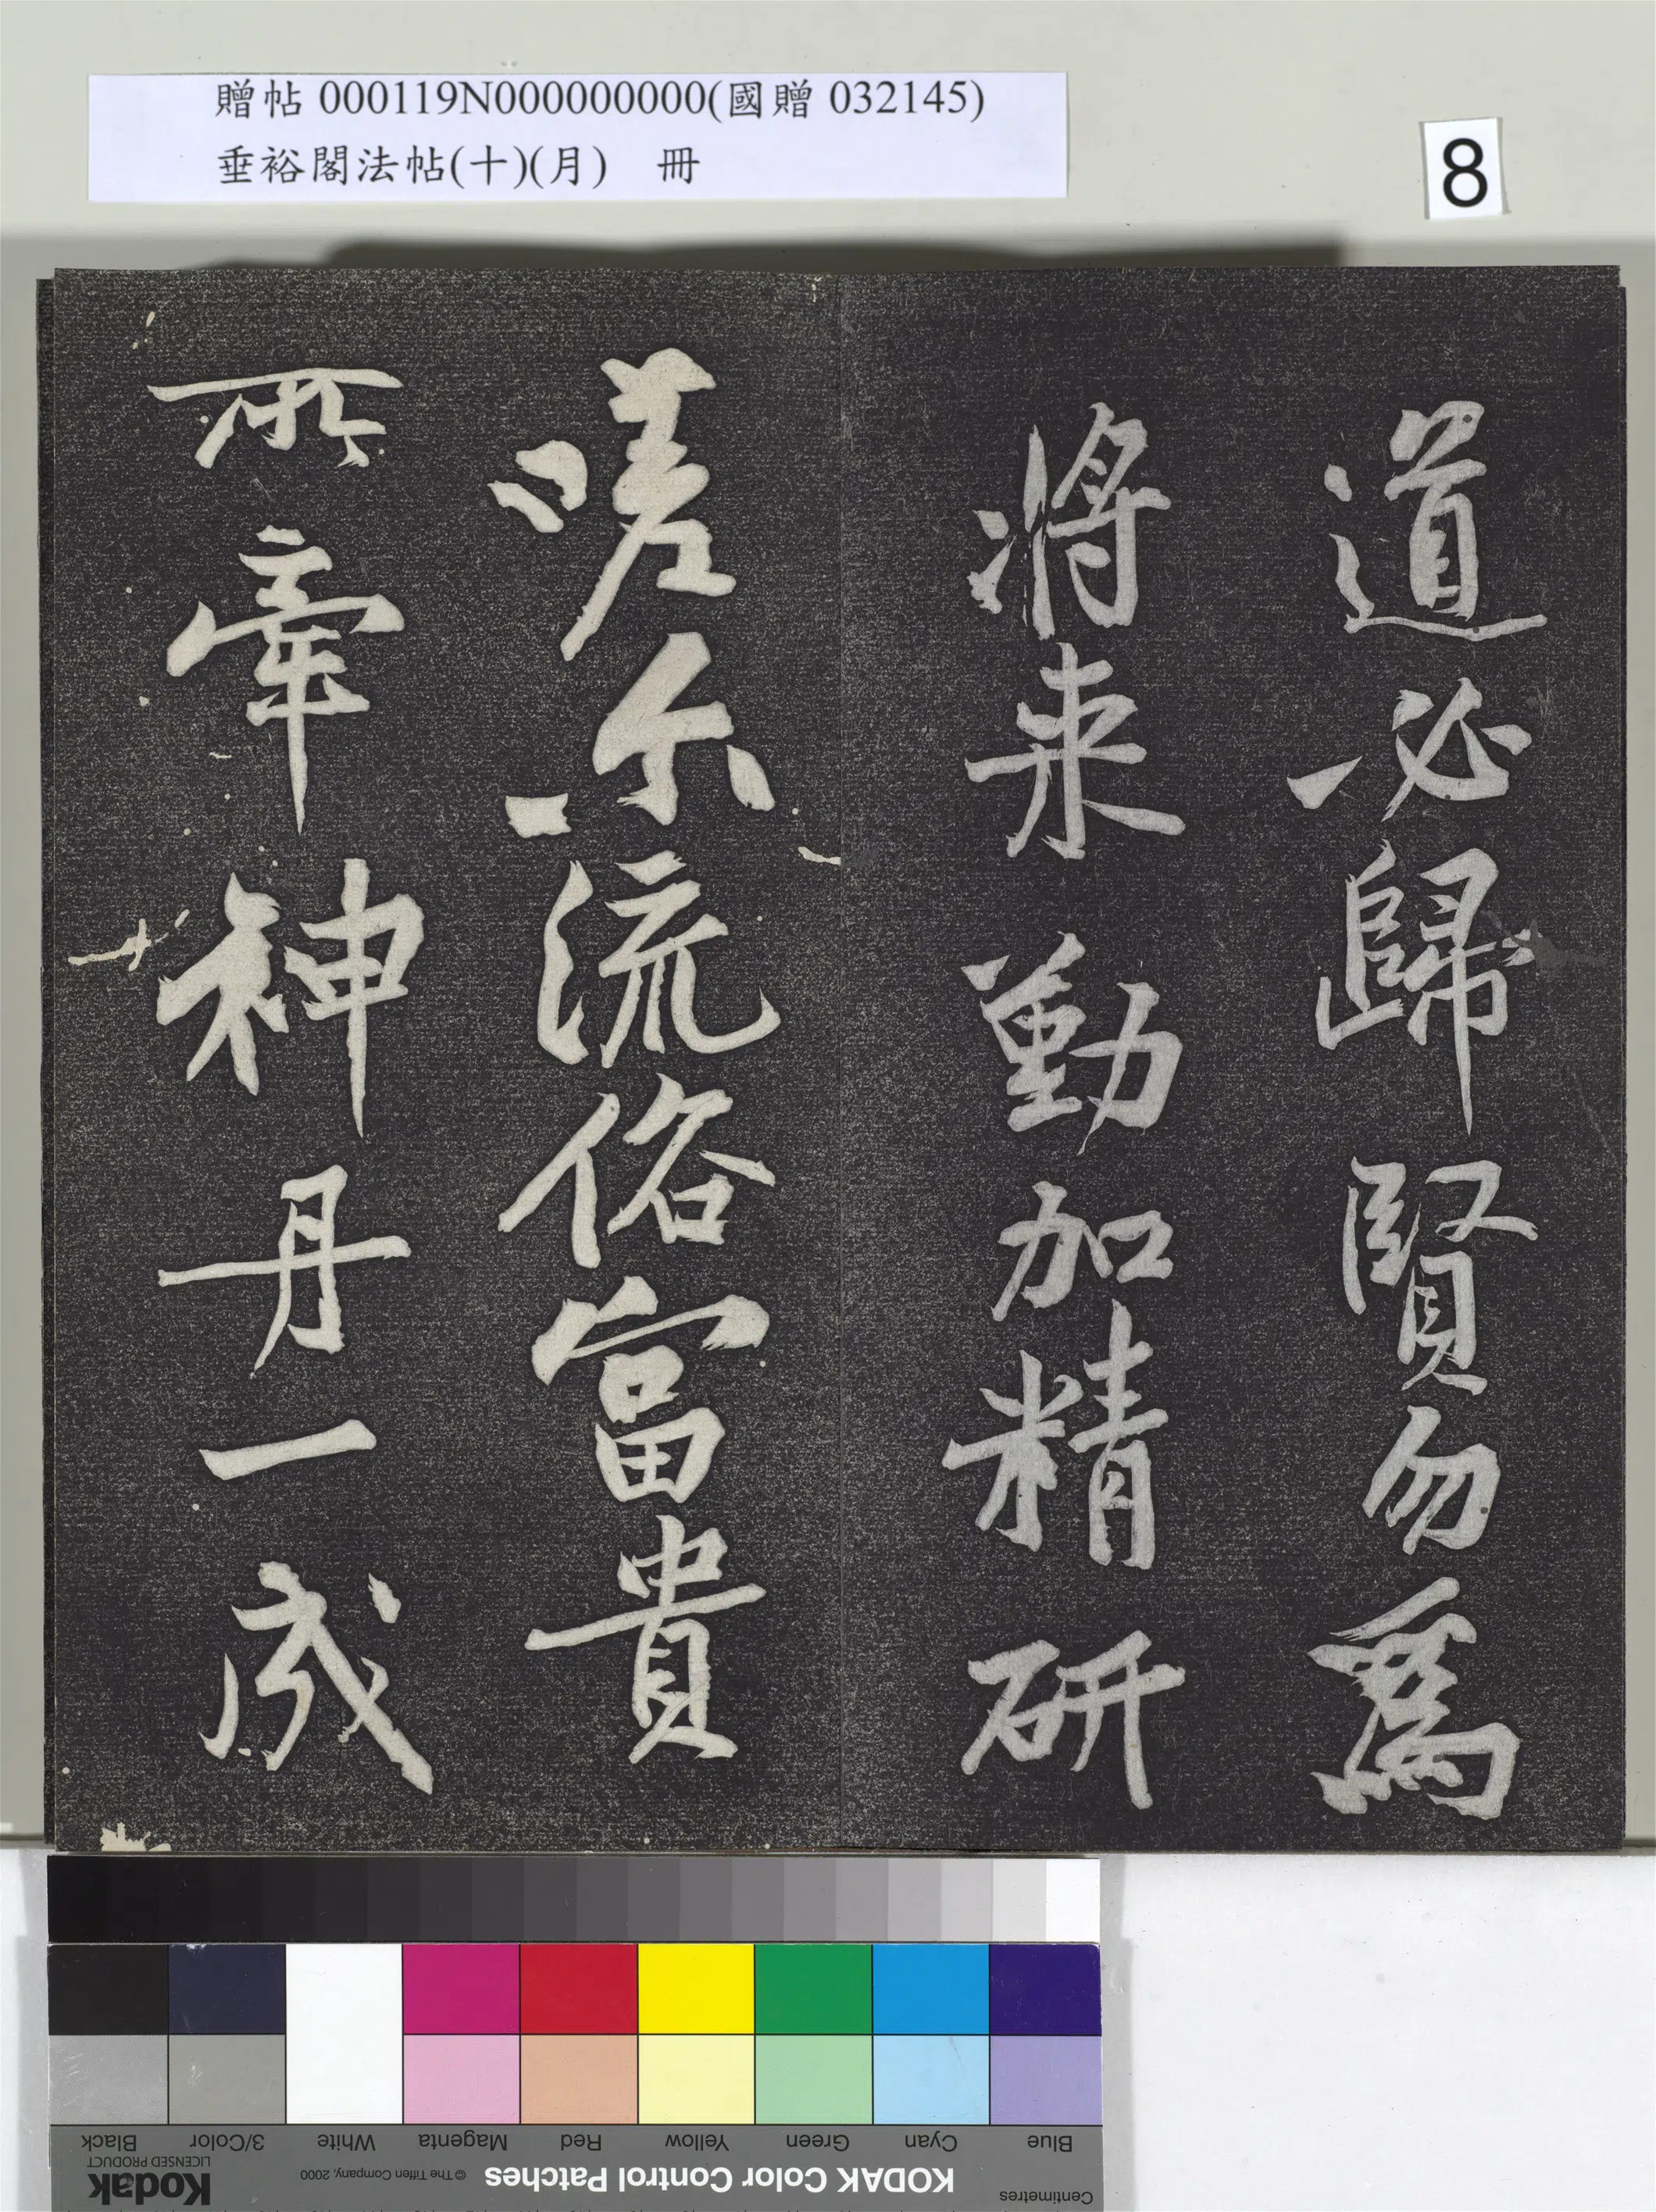 贈帖 000119N000000000(國贈 032145)
垂裕閣法帖(十)(月) 冊
8
道必歸賢勿爲
將来勤加精研
嗟尒流俗富貴
所牽神丹一成
Centimetres
KODAK Color Control Patches © The Tiffen Company, 2000
Kodak
LICENSED PRODUCT
Blue Cyan Green Yellow Red Magenta White 3/Color Black